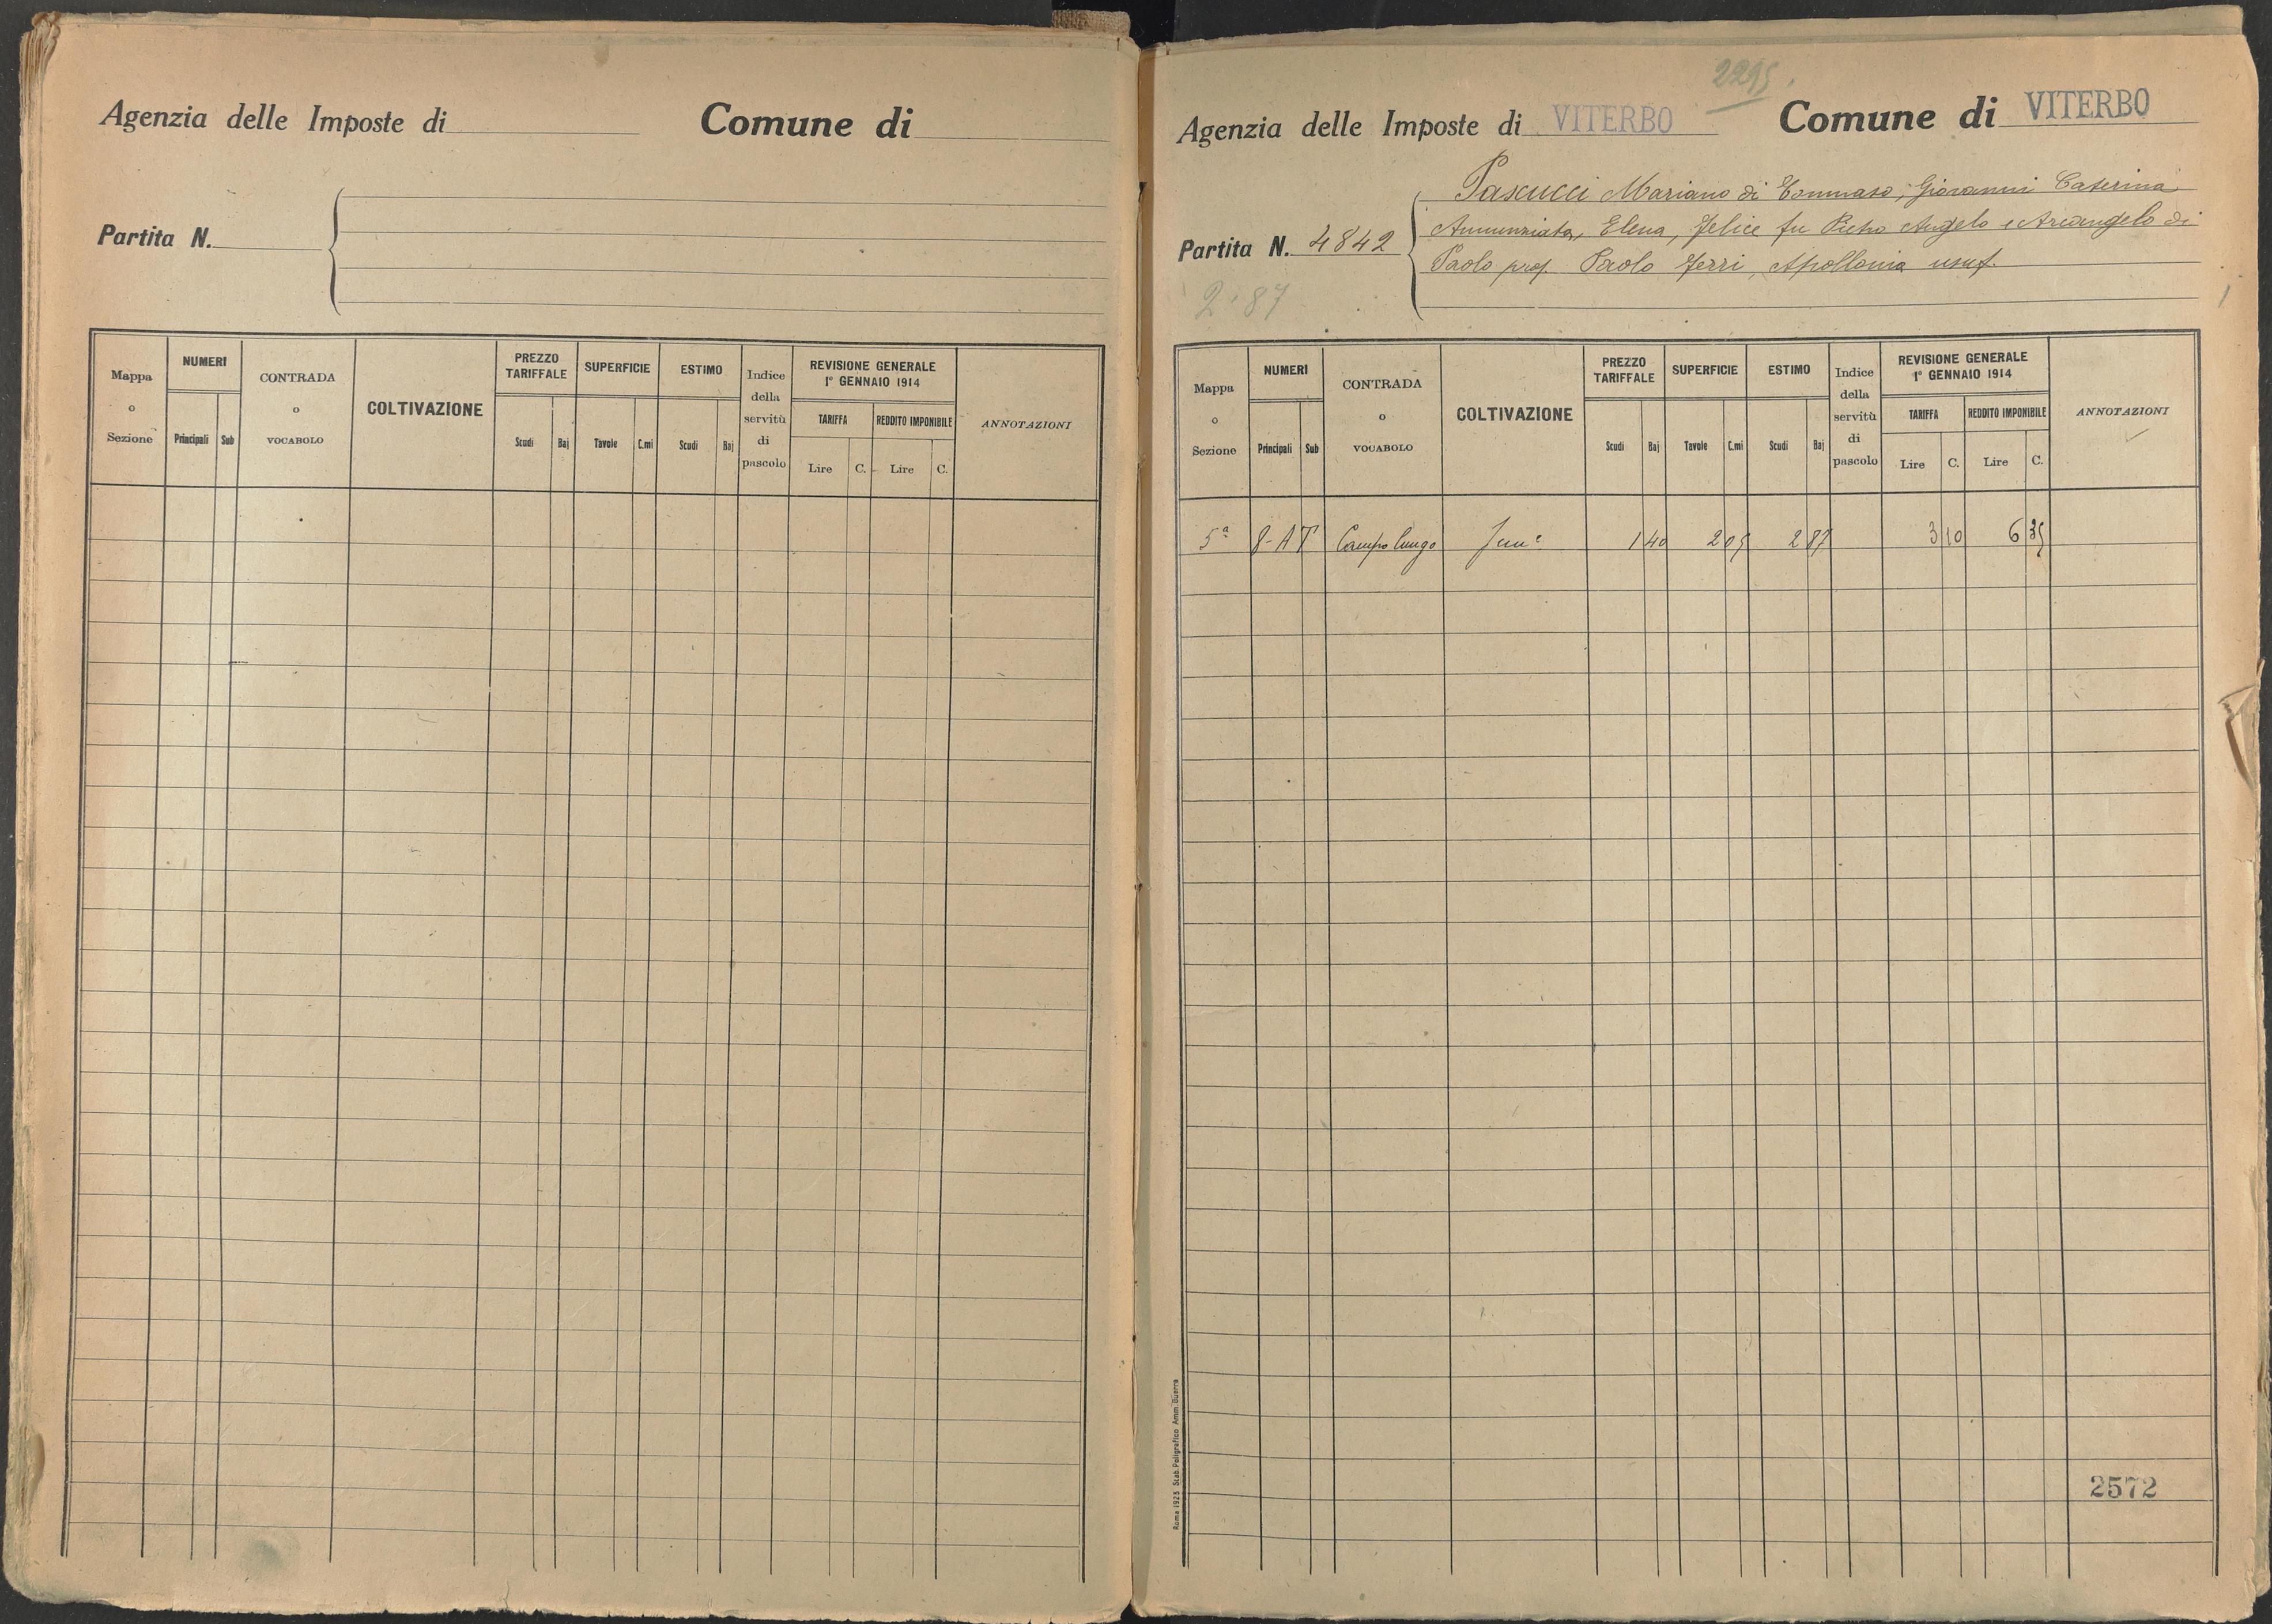 Agenzia delle Imposte di Comune di
Partita N.
Mappa o Sezione NUMERI Principali Sub CONTRADA o VOCABOLO COLTIVAZIONE PREZZO TARIFFALE Scudi Baj SUPERFICIE Tavole C.mi ESTIMO Scudi Baj Indice della servitù di pascolo REVISIONE GENERALE 1° GENNAIO 1914 TARIFFA Lire C. REDDITO IMPONIBILE Lire C. ANNOTAZIONI
2295.
Agenzia delle Imposte di VITERBO Comune di VITERBO
Pascucci Mariano di Tommaso, Giovanni Caterina
Annunziata, Elena, Felice fu Pietro Angelo e Arcangelo di
Partita N. 4842
Paolo prop. Paolo Ferri, Apollonia usuf.
2.87
Mappa o Sezione NUMERI Principali Sub CONTRADA o VOCABOLO COLTIVAZIONE PREZZO TARIFFALE Scudi Baj SUPERFICIE Tavole C.mi ESTIMO Scudi Baj Indice della servitù di pascolo REVISIONE GENERALE 1° GENNAIO 1914 TARIFFA Lire C. REDDITO IMPONIBILE Lire C. ANNOTAZIONI
5ª 8-AT Campo lungo 1 40 2 05 2 87 3 10 6 35
Roma 1923 Stab. Poligrafico Amm. Guerra
2572